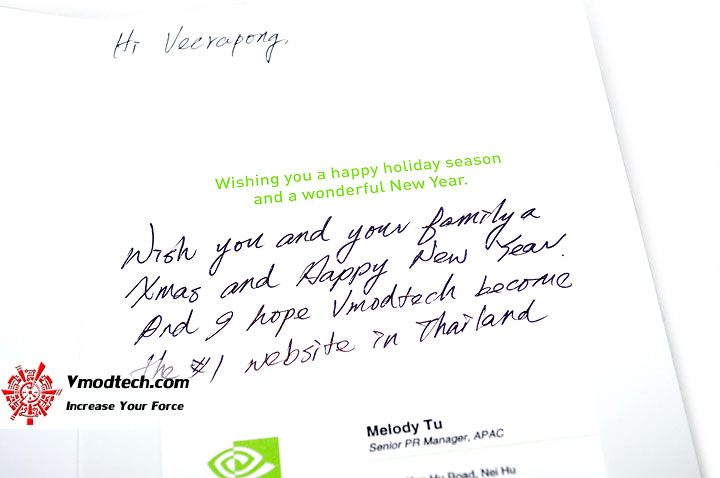 Hi Veerapong,
Wishing you a happy holiday season
and a wonderful New Year.
Wish you and your family a
Xmas and Happy New Year.
And I hope Vmodtech become
the #1 website in Thailand
Vmodtech.com
Increase Your Force
Melody Tu
Senior PR Manager, APAC
Hu Road, Nei Hu